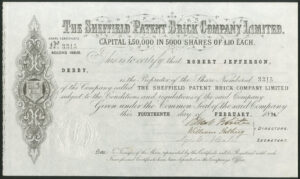 THE SHEFFIELD PATENT BRICK COMPANY LIMITED.
CAPITAL £50,000 IN 5000 SHARES OF £10 EACH.
No 3315
This is to certify that ROBERT JEFFERSON,
DERBY,
is the Proprietor of the Share Numbered 3315
of the Company called THE SHEFFIELD PATENT BRICK COMPANY LIMITED
subject to the Conditions and regulations of the said Company
Given under the Common Seal of the said Company
this FOURTEENTH day of FEBRUARY,
DIRECTORS.
SECRETARY.